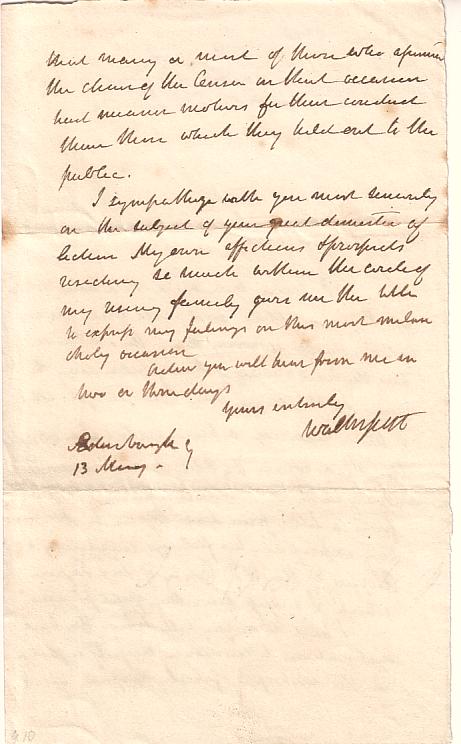 that many or most of those who
the of the Censor on that occasion
had meaner motives for their conduct
than those which they held out to the
public.
I sympathize with you most sincerely
on the subject of your great domestic
My own affections & prospects
so much within the circle of
my young family gives me the title
to express my feelings on this most melan
choly occasion
Adieu you will hear from me in
two or three days
Yours entirely
Walter Scott
Edinburgh
13 May.